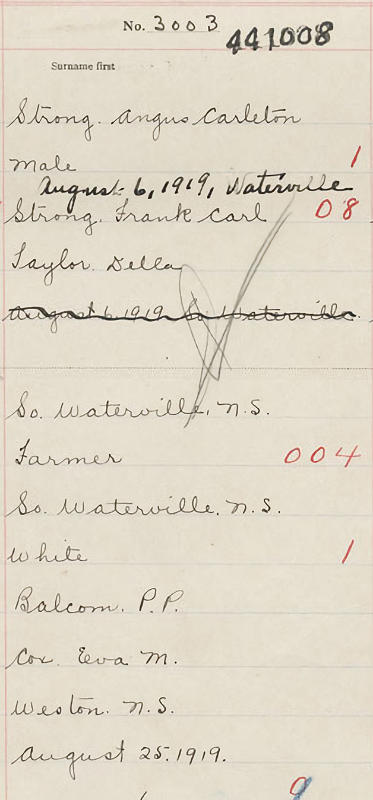 No. 3003
441008
Surname first
Strong. Angus Carleton
male 1
August 6, 1919, Waterville
Strong. Frank Carl 08
Taylor. Della
August 6 1919 So Waterville.
So. Waterville, N.S.
Farmer 004
So. Waterville. N.S.
White 1
Balcom. P.P.
Cox. Eva M.
Weston. N.S.
August 25. 1919.
9